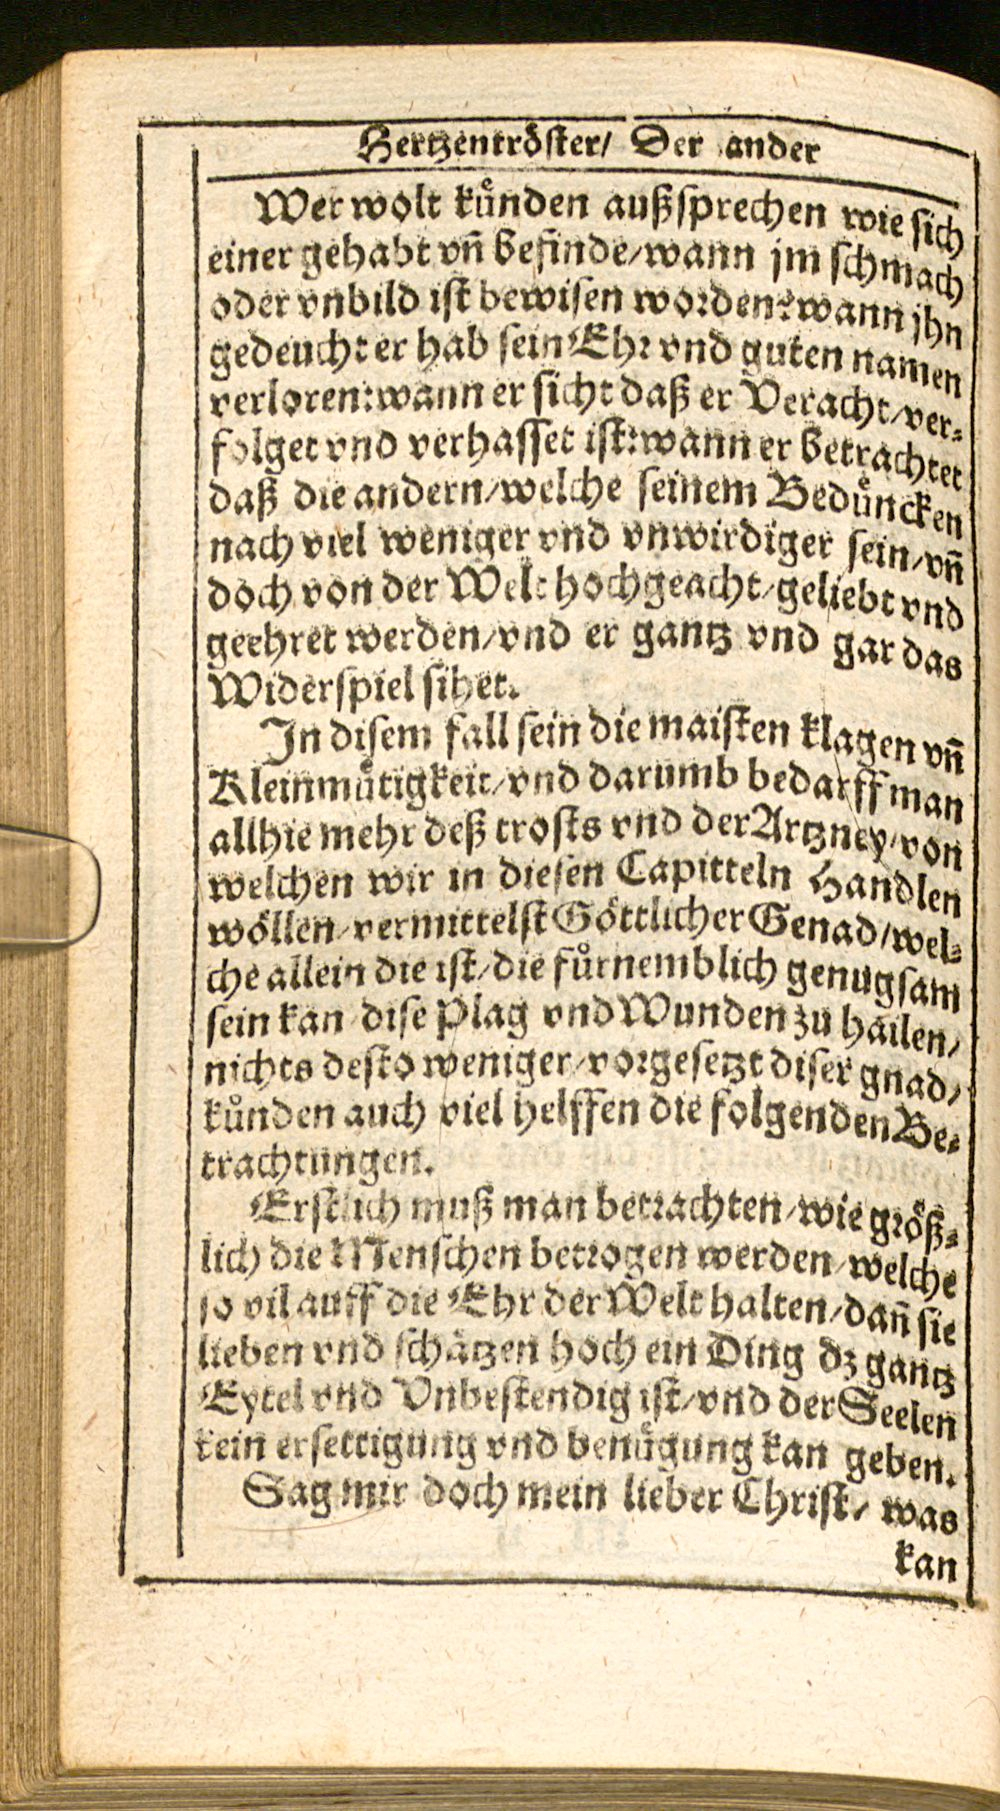 Hertzentröster/ Der ander
Wer wolt kůnden außsprechen wie sich
einer gehabt vn̄ befinde/wann jm schmach
oder vnbild ist bewisen worden? wann jhn
gedeucht er hab sein Ehr vnd guten namen
verloren: wann er sicht daß er Veracht/ver-
folget vnd verhasset ist: wann er betrachtet
daß die andern/welche seinem Bedůncken
nach viel weniger vnd vnwirdiger sein/vn̄
doch von der Welt hochgeacht/geliebt vnd
geehret werden/vnd er gantz vnd gar das
Widerspiel sihet.
In disem fall sein die maisten klagen vn̄
Kleinmůtigkeit/vnd darumb bedarff man
allhie mehr deß trosts vnd der Artzney/von
welchen wir in diesen Capitteln Handlen
wöllen/vermittelst Göttlicher Genad/wel-
che allein die ist/die fůrnemblich genugsam
sein kan dise Plag vnd Wunden zu hailen/
nichts desto weniger/vorgesetzt diser gnad/
kůnden auch viel helffen die folgenden Be-
trachtungen.
Erstlich muß man betrachten/wie größ-
lich die Menschen betrogen werden/welche
so vil auff die Ehr der Welt halten/dan̄ sie
lieben vnd schätzen hoch ein Ding dz gantz
Eytel vnd Vnbestendig ist/vnd der Seelen
kein ersettigung vnd benůgung kan geben.
Sag mir doch mein lieber Christ/ was
kan